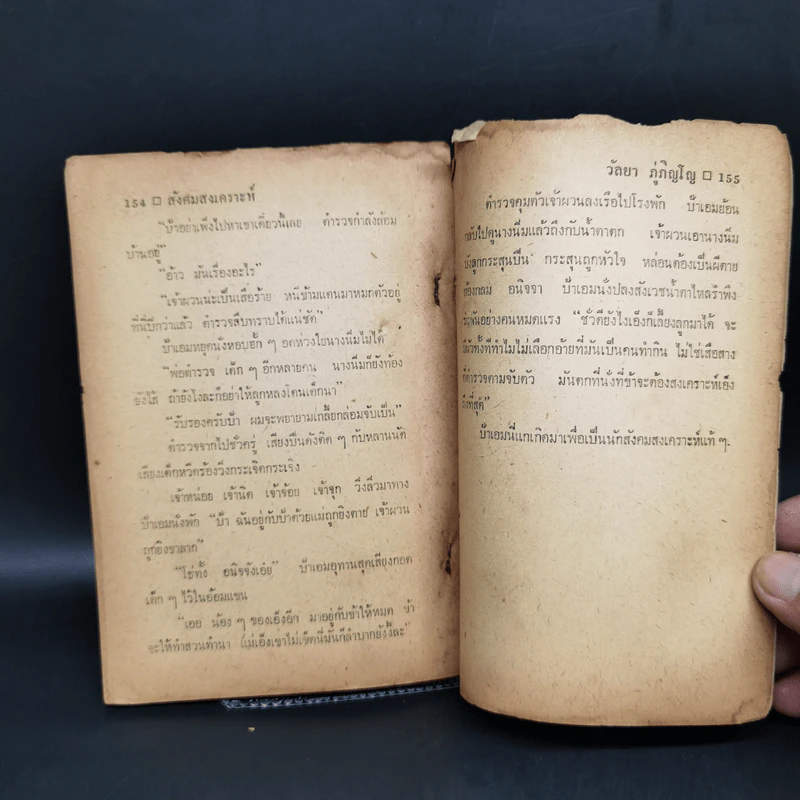 154 □ สังคมสงเคราะห์
"ป้าอย่าเพิ่งไปหาเขาเดี๋ยวนี้เลย ตำรวจกำลังล้อม
บ้านอยู่"
"อ้าว มันเรื่องอะไร"
"เจ้าผวนน่ะเป็นเสือร้าย หนีข้ามแดนมาหมกตัวอยู่
ที่นี่ปีกว่าแล้ว ตำรวจสืบทราบได้แน่ชัด"
ป้าเอมหยุดนั่งหอบฮั้ก ๆ อดห่วงใยนางนิ่มไม่ได้
"พ่อตำรวจ เด็ก ๆ อีกหลายคน นางนิ่มก็ยังท้อง
ยังไส้ ถ้ายังไงละก็อย่าให้ลูกหลงโดนเด็กนา"
"รับรองครับป้า ผมจะพยายามเกลี้ยกล่อมจับเป็น"
ตำรวจจากไปชั่วครู่ เสียงปืนดังติด ๆ กับหลายนัด
เสียงเด็กหวีดร้องวิ่งกระเจิดกระเจิง
เจ้าหน่อย เจ้านิด เจ้าจ้อย เจ้าจุก วิ่งลิ่วมาทาง
ป้าเอมนั่งพัก "ป้า ฉันอยู่กับป้าด้วยแม่ถูกยิงตาย เจ้าผวน
ถูกยิงขาลาก"
"โธ่ทั้ง อนิจจังเอ๋ย" ป้าเอมอุทานสุดเสียงกอด
เด็ก ๆ ไว้ในอ้อมแขน
"เออ น้อง ๆ ของเอ็งอีก มาอยู่กับข้าให้หมด ข้า
จะให้ทำสวนทำนา แม่เอ็งเขาไม่เข็ดนี่มันก็ลำบากยังงี้ละ"
วัลยา ภู่ภิญโญ □ 155
ตำรวจคุมตัวเจ้าผวนลงเรือไปโรงพัก ป้าเอมย้อน
กลับไปดูนางนิ่มแล้วถึงกับน้ำตาตก เจ้าผวนเอานางนิ่ม
บังลูกกระสุนปืน กระสุนถูกหัวใจ หล่อนต้องเป็นผีตาย
ท้องกลม อนิจจา ป้าเอมนั่งปลงสังเวชน้ำตาไหลรำพึง
รำพันอย่างคนหมดแรง "ชั่วดียังไงเอ็งก็เลี้ยงลูกมาได้ จะ
มีผัวทั้งทีทำไมไม่เลือกอ้ายที่มันเป็นคนทำกิน ไม่ใช่เสือสาง
ที่ตำรวจตามจับตัว มันตกที่นั่งที่ข้าจะต้องสงเคราะห์เอ็ง
ถึงที่สุด"
ป้าเอมนี่แกเกิดมาเพื่อเป็นนักสังคมสงเคราะห์แท้ ๆ.